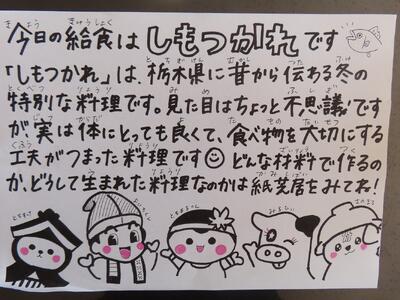 今日の給食はしもつかれです
「しもつかれ」は、栃木県に昔から伝わる冬の
特別な料理です。見た目はちょっと不思議ですが
が、実は体にとっても良くて、食べ物を大切にする
工夫がつまった料理です☺ どんな材料で作るの
か、どうして生まれた料理なのかは紙芝居をみてね!